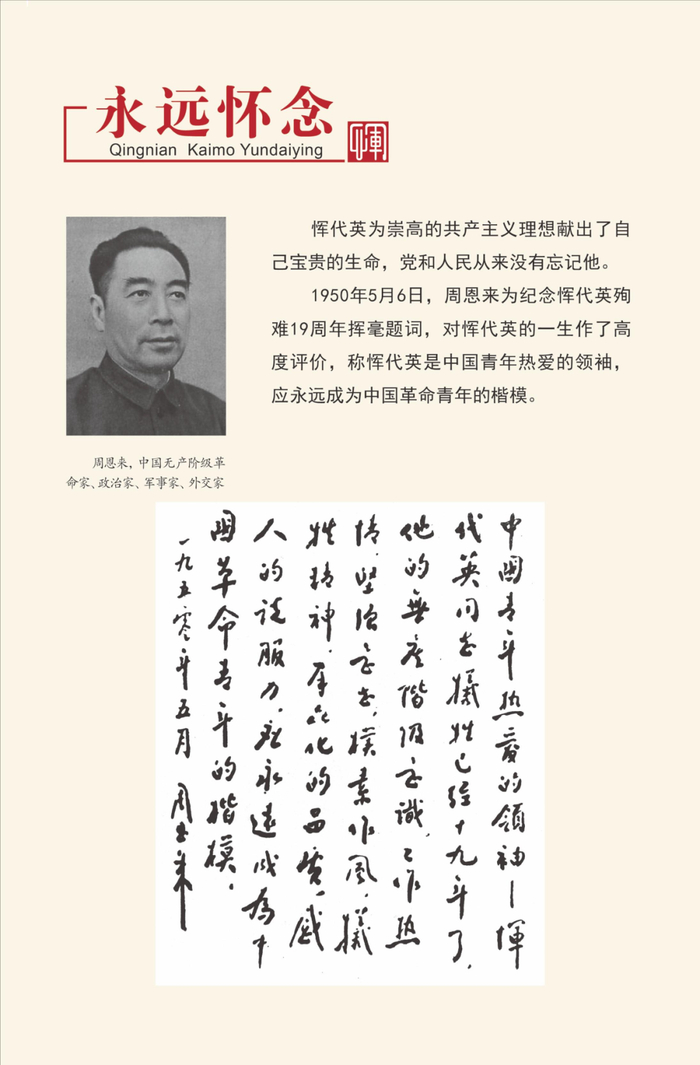 永远怀念
Qingnian Kaimo Yundaiying
恽
恽代英为崇高的共产主义理想献出了自
己宝贵的生命，党和人民从来没有忘记他。
1950年5月6日，周恩来为纪念恽代英殉
难19周年挥毫题词，对恽代英的一生作了高
度评价，称恽代英是中国青年热爱的领袖，
应永远成为中国革命青年的楷模。
周恩来，中国无产阶级革
命家、政治家、军事家、外交家
中國青年热爱的領袖—惲
代英同志犧牲已經十九年了，
他的無產階級意識，工作热
情，坚强意志，模素作風，犧
牲精神，群众化的品質，感
人的説服力，应永遠成為中
國革命青年的楷模。
一九五零年五月 周恩来